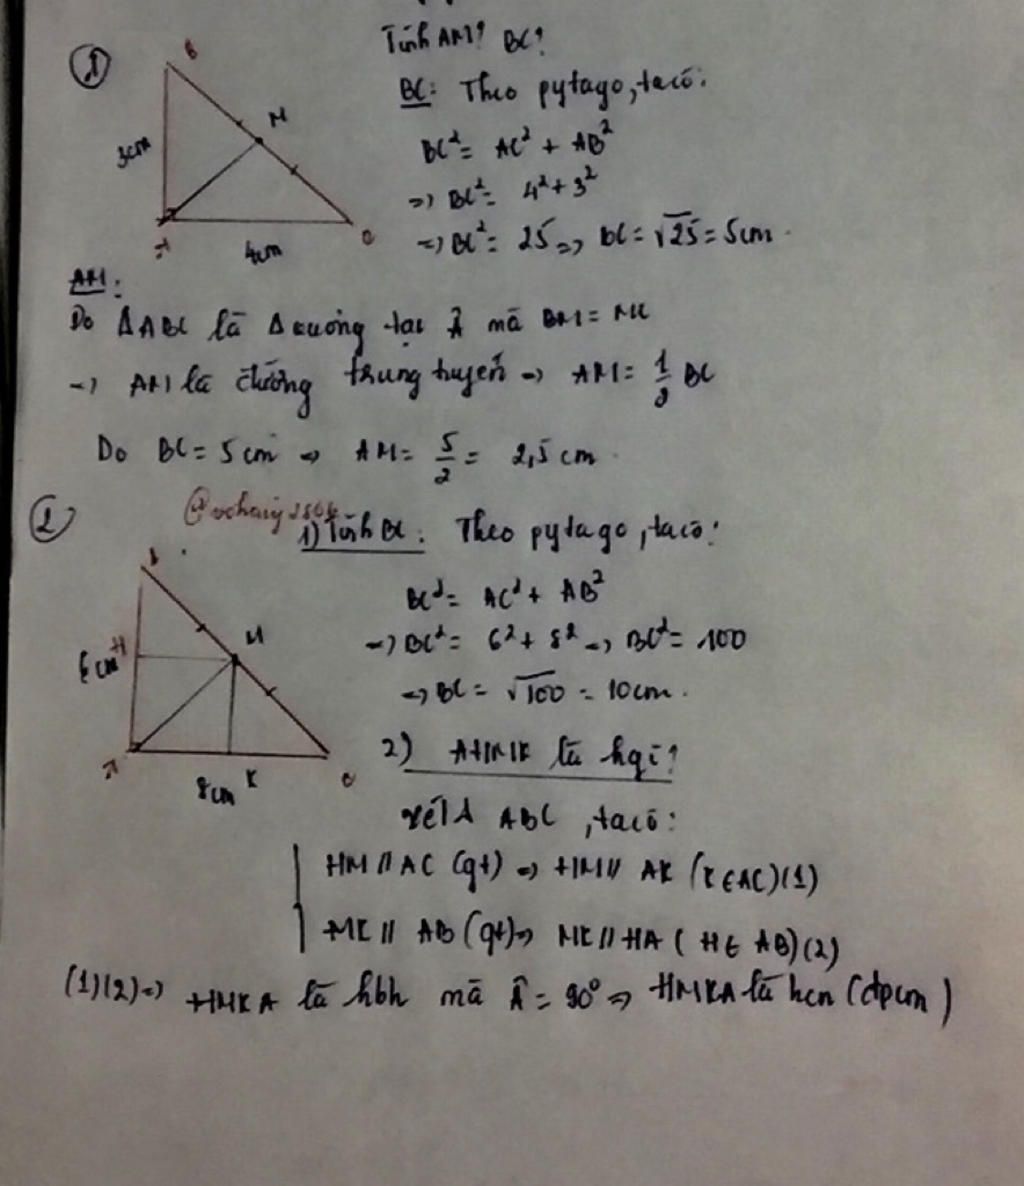 Tính AM? BC?
①
BC: Theo pytago, ta có:
B
M
3cm
A
4cm
C
BC² = AC² + AB²
=> BC² = 4² + 3²
=> BC² = 25 => BC = √25 = 5cm.
AM:
Do ΔABC là Δ vuông tại Â mà BM = MC
=> AM là đường trung tuyến => AM = 1/2 BC
Do BC = 5cm => AM = 5/2 = 2,5cm.
②
1) Tính BC: Theo pytago, ta có:
B
M
H
6cm
A
8cm
K
C
BC² = AC² + AB²
=> BC² = 6² + 8² => BC² = 100
=> BC = √100 = 10cm.
2) AHMK là hgì?
xét Δ ABC, ta có:
HM // AC (gt) => HM // AK (K ∈ AC) (1)
MK // AB (gt) => MK // HA (H ∈ AB) (2)
(1)(2) => HMKA là hbh mà Â = 90° => HMKA là hcn (đpcm)